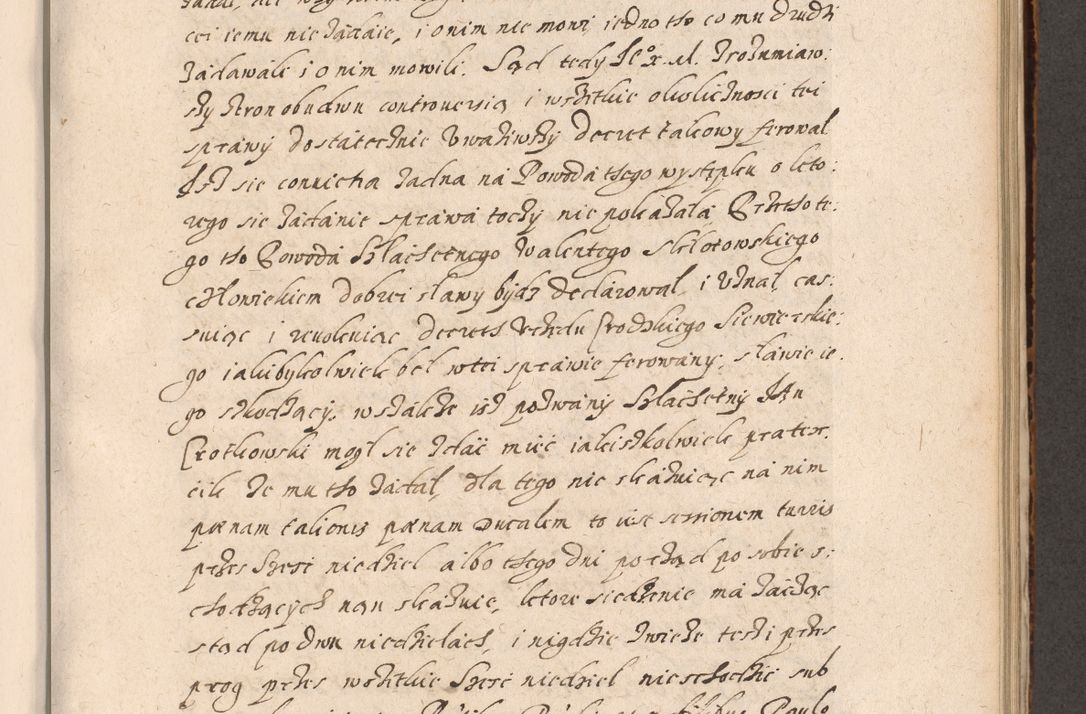 cei iemu nie zadaie, i onim nie mowi iedno tho co mu drudzi
zadawali i o nim mowili. Sąd tedy Je° x. M. zrozumiaw:
szy stron obudwu controuersią i wszitkie okolicznosci tei
sprawy dostatecznie uwaziwszy decret takowy ferował
Isz sie convicta zadna na Powoda thego występku o kto:
rego sie zadanie sprawa toczy nie pokazała Przetho te:
go tho Powoda Szlachetnego Walentego Sklotowskiego
człowiekiem dobrei sławy bydz declarował i uznał, cas:
suiąc i revokuiąc decreth Urzędu Grodzkiego Siewierskie:
go iakibykolwiek beł wtei sprawie ferowany, sławie ie:
go szkodzący, wszakze isz pozwany Szlachetny Jan
Crotkowski mogł sie zdać mieć iakiszkolwiek pratex.
cik ze mu tho zadał, dla tego nie skazuiąc na nim
pœnam talionis pœnam ducalem to iest sessionem turris
przes szesc niedziel albo thego dni porząd po sobie s:
chodzących nan skazuie, ktore siedzenie ma zacząc
stąd po dwu niedzielach, i nigdzie zwieze teszi przes
prog przes wszitkie szesc niedziel nieschodzic sub